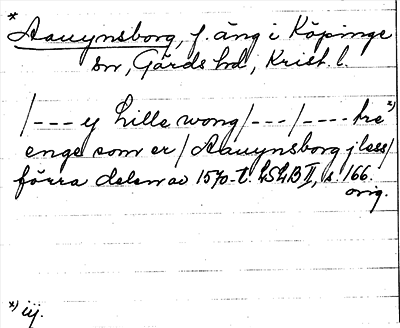 * Aauynsborg, f. äng i Köpinge
sn, Gärds hd, Krist. l.
/--- y Lille wong/---/---- tre *)
enge som er / Aauynsborg j læss/
förra delen av 1570-t. LSLB II, s. 166.
orig.
*) iij.